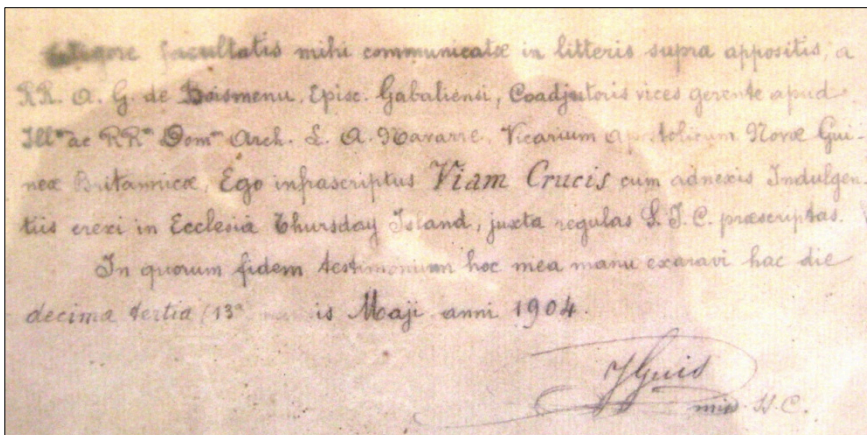 Vigore facultatis mihi communicatæ in litteris supra appositis, a
RR. A. G. de Boismenu, Episc. Gabaliensi, Coadjutoris vices gerente apud
Illm ac RRm Domm Arch. L. A. Navarre, Vicarium apostolicum Novæ Gui-
neæ Britannicæ, Ego infrascriptus Viam Crucis cum adnexis Indulgen-
tiis erexi in Ecclesia Thursday Island, juxta regulas S. I. C. præscriptas.
In quorum fidem testimonium hoc mea manu exaravi hac die
decima tertia (13a is Maji anni 1904.
J Guis
miss. S. C.